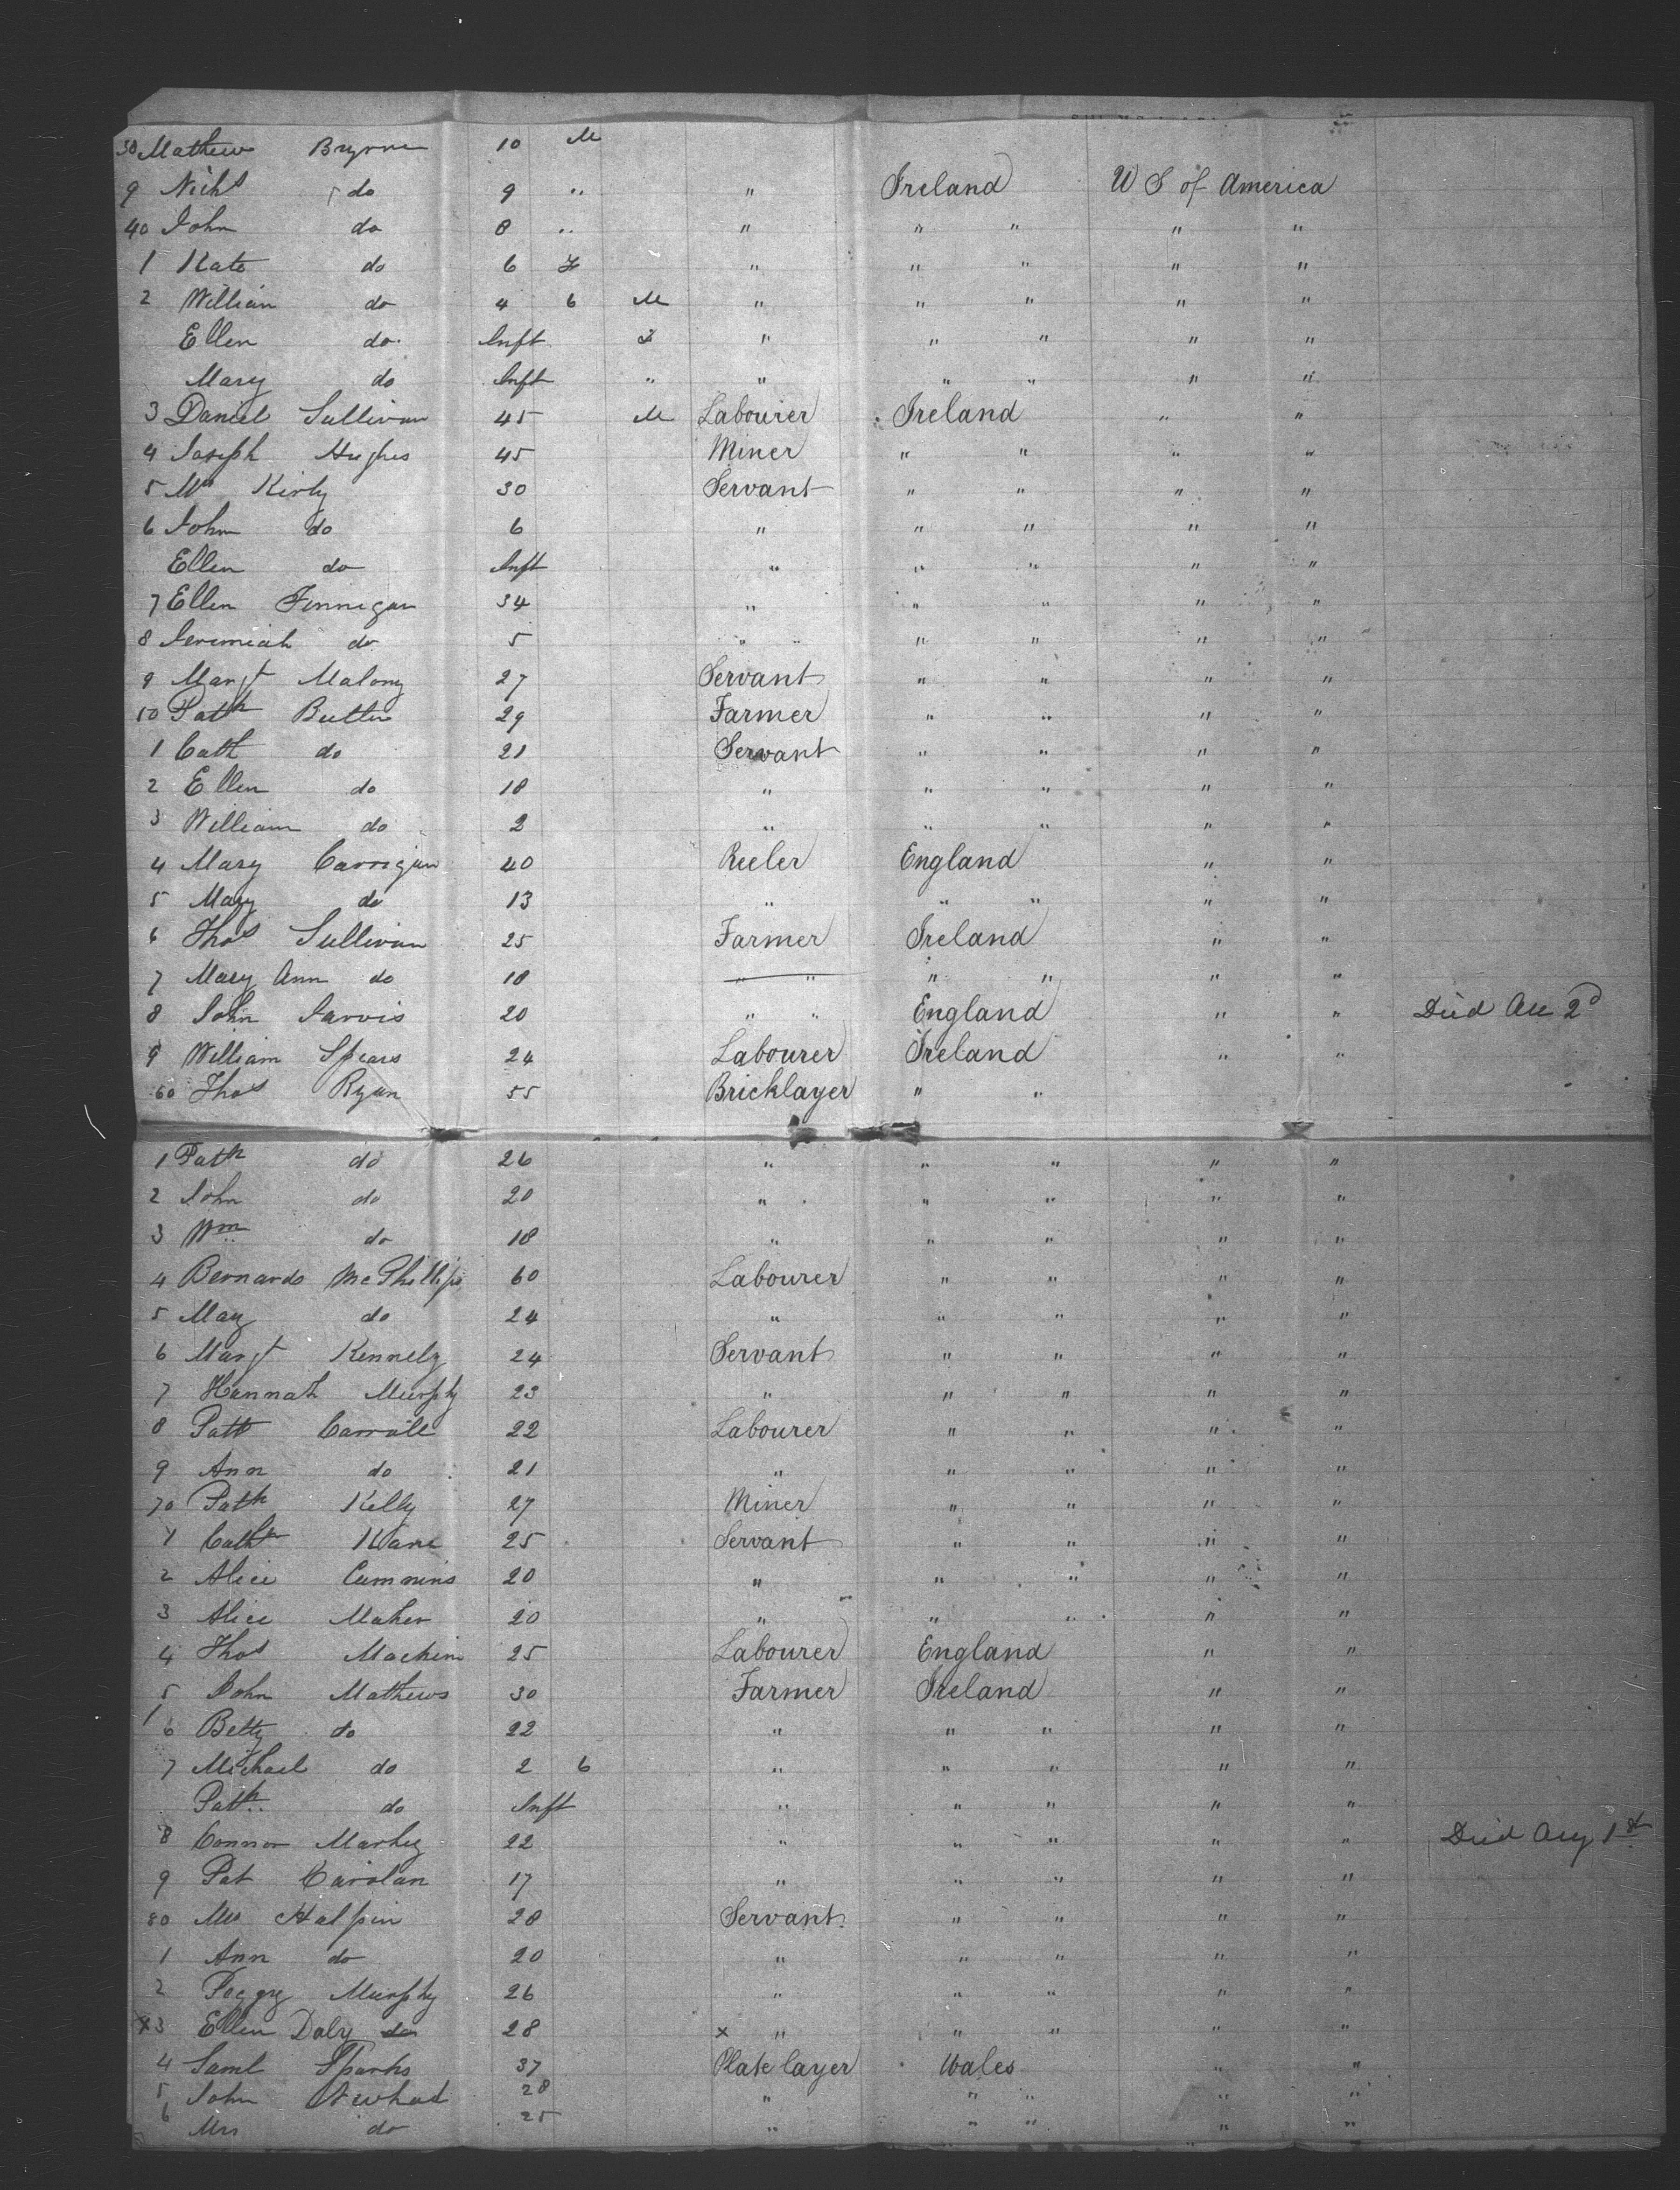 38 Mathew Byrne 10 M
9 Nichs do 9 " " Ireland U S of America
40 John do 8 " " " " " "
1 Kate do 6 F " " " " "
2 William do 4 6 M " " " " "
Ellen do Inft F " " " " "
Mary do Inft " " " " " "
3 Daniel Sullivan 45 M Labourer Ireland " "
4 Joseph Hughes 45 Miner " " " "
5 Mrs Kirby 30 Servant " " " "
6 John do 6 " " " " "
Ellen do Inft " " " " "
7 Ellen Finnigan 34 " " " " "
8 Jeremiah do 5 " " " " " "
9 Margt Malony 27 Servant " " " "
50 Patk Butler 29 Farmer " " " "
1 Cath do 21 Servant " " " "
2 Ellen do 18 " " " " "
3 William do 2 " " " " "
4 Mary Carrigan 40 Reeler England " "
5 Mary do 13 " " " " "
6 Thos Sullivan 25 Farmer Ireland " "
7 Mary Ann do 18 " " " " " "
8 John Jarvis 20 " " England " " Died Au 2d
9 William Spears 24 Labourer Ireland " "
60 Thos Ryan 55 Bricklayer " "
1 Patk do 26 " " " " "
2 John do 20 " " " " "
3 Wm do 18 " " " " "
4 Bernardo McPhillips 60 Labourer " " " "
5 May do 24 " " " " "
6 Margt Kennely 24 Servant " " " "
7 Hannah Murphy 23 " " " " "
8 Patk Carroll 22 Labourer " " " "
9 Ann do 21 " " " " "
70 Patk Kelly 27 Miner " " " "
1 Cathn Kane 25 Servant " " " "
2 Alice Cummins 20 " " " " "
3 Alice Maher 20 " " " " "
4 Thos Machin 25 Labourer England " "
5 John Mathews 30 Farmer Ireland " "
6 Betty do 22 " " " " "
7 Michael do 2 6 " " " " "
Patk do Inft " " " " "
8 Connor Markey 22 " " " " " Died Aug 1st
9 Pat Carolan 17 " " " " "
80 Mrs Halpin 28 Servant " " " "
1 Ann do 20 " " " " "
2 Peggy Murphy 26 " " " " "
x3 Ellen Daly do 28 x " " " " "
4 Saml Sparks 37 Plate layer Wales " "
5 John 28 " " " " "
6 Mrs do 25 " " " " "